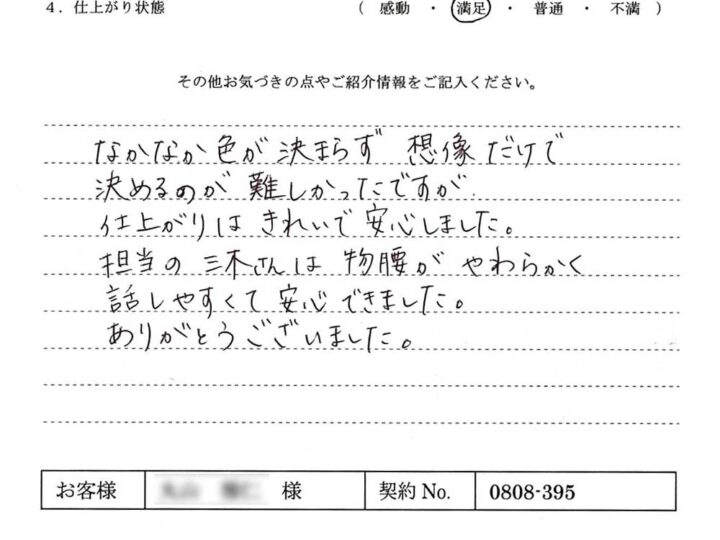 4．仕上がり状態 （ 感動 ・ 満足 ・ 普通 ・ 不満 ）
その他お気づきの点やご紹介情報をご記入ください。
なかなか色が決まらず 想像だけで
決めるのが難しかったですが
仕上がりは きれいで安心しました。
担当の三木さんは 物腰が やわらかく
話しやすくて安心できました。
ありがとうございました。
お客様 様 契約 No. 0808-395